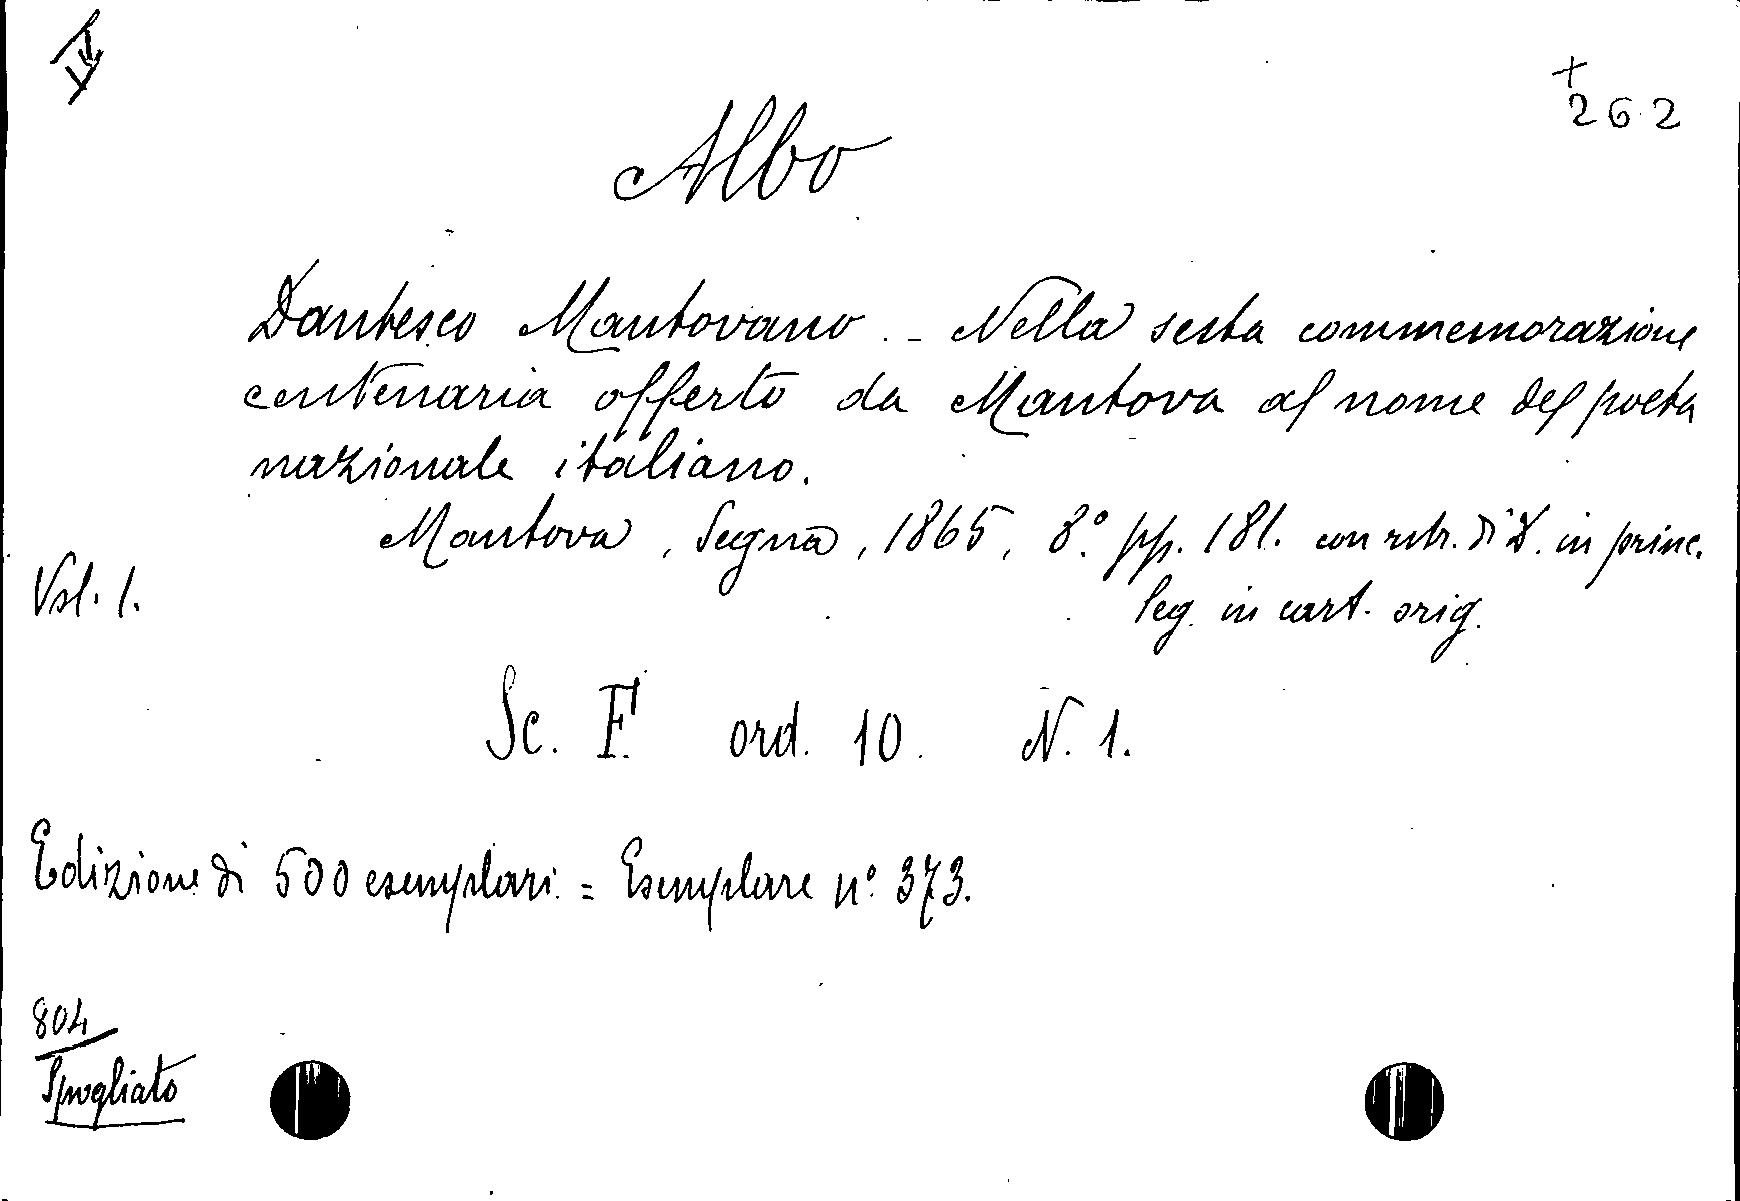 IV
+
262
Albo
Dantesco Mantovano. - Nella sesta commemorazione
centenaria offerto da Mantova al nome del poeta
nazionale italiano.
Mantova, Segna, 1865, 8.° pp. 181. con ritr. di D. in princ.
Vol. 1.
leg. in cart. orig.
Sc. F. ord. 10. N. 1.
Edizione di 500 esemplari. = Esemplare n.° 373.
804
Spogliato